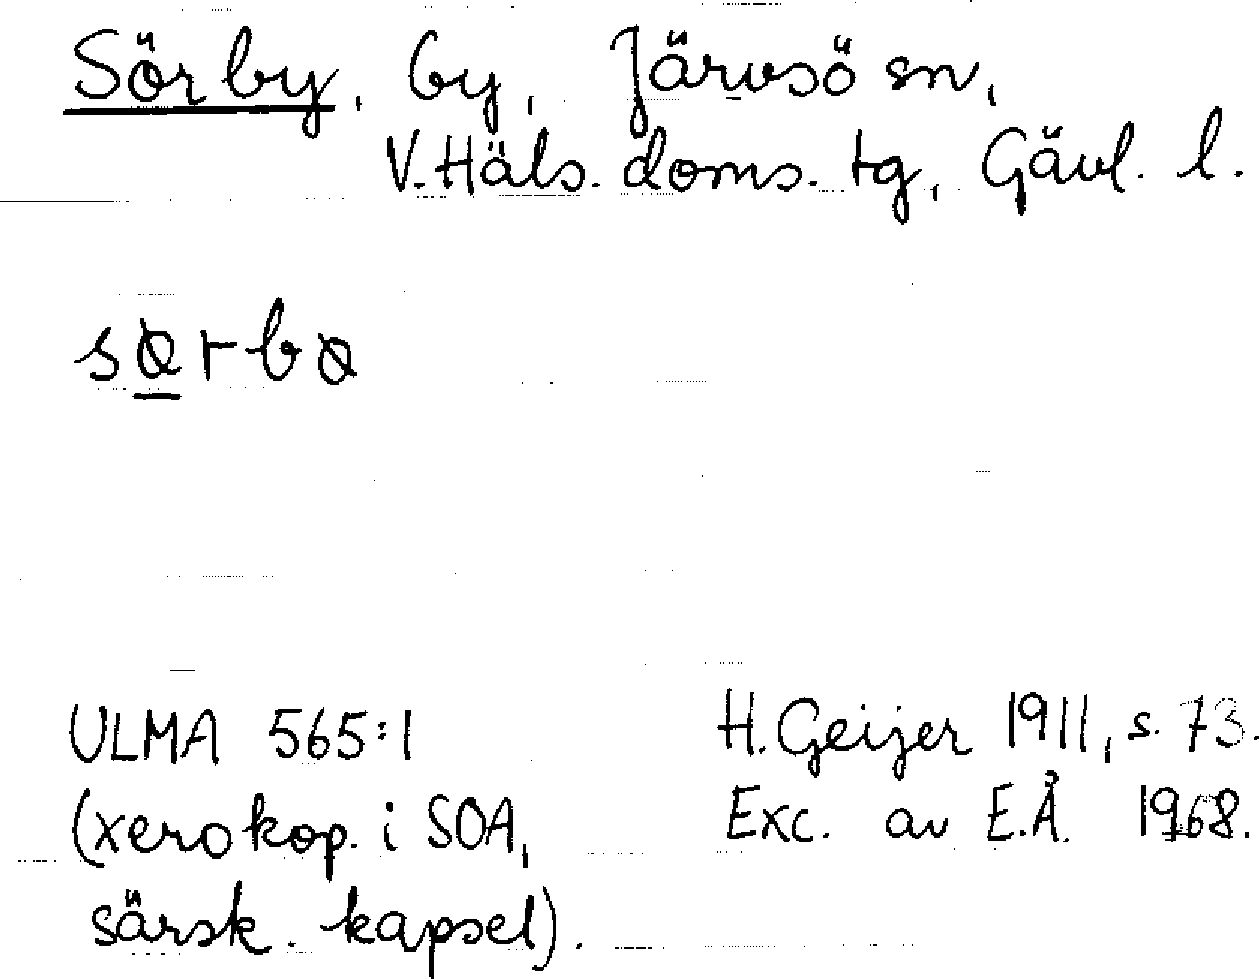 Sörby, by, Järvsö sn,
V. Häls. doms. tg, Gävl. l.
sørbø
ULMA 565:1
(xerokop. i SOA,
särsk. kapsel).
H. Geijer 1911, s. 73.
Exc. av E.Å. 1968.